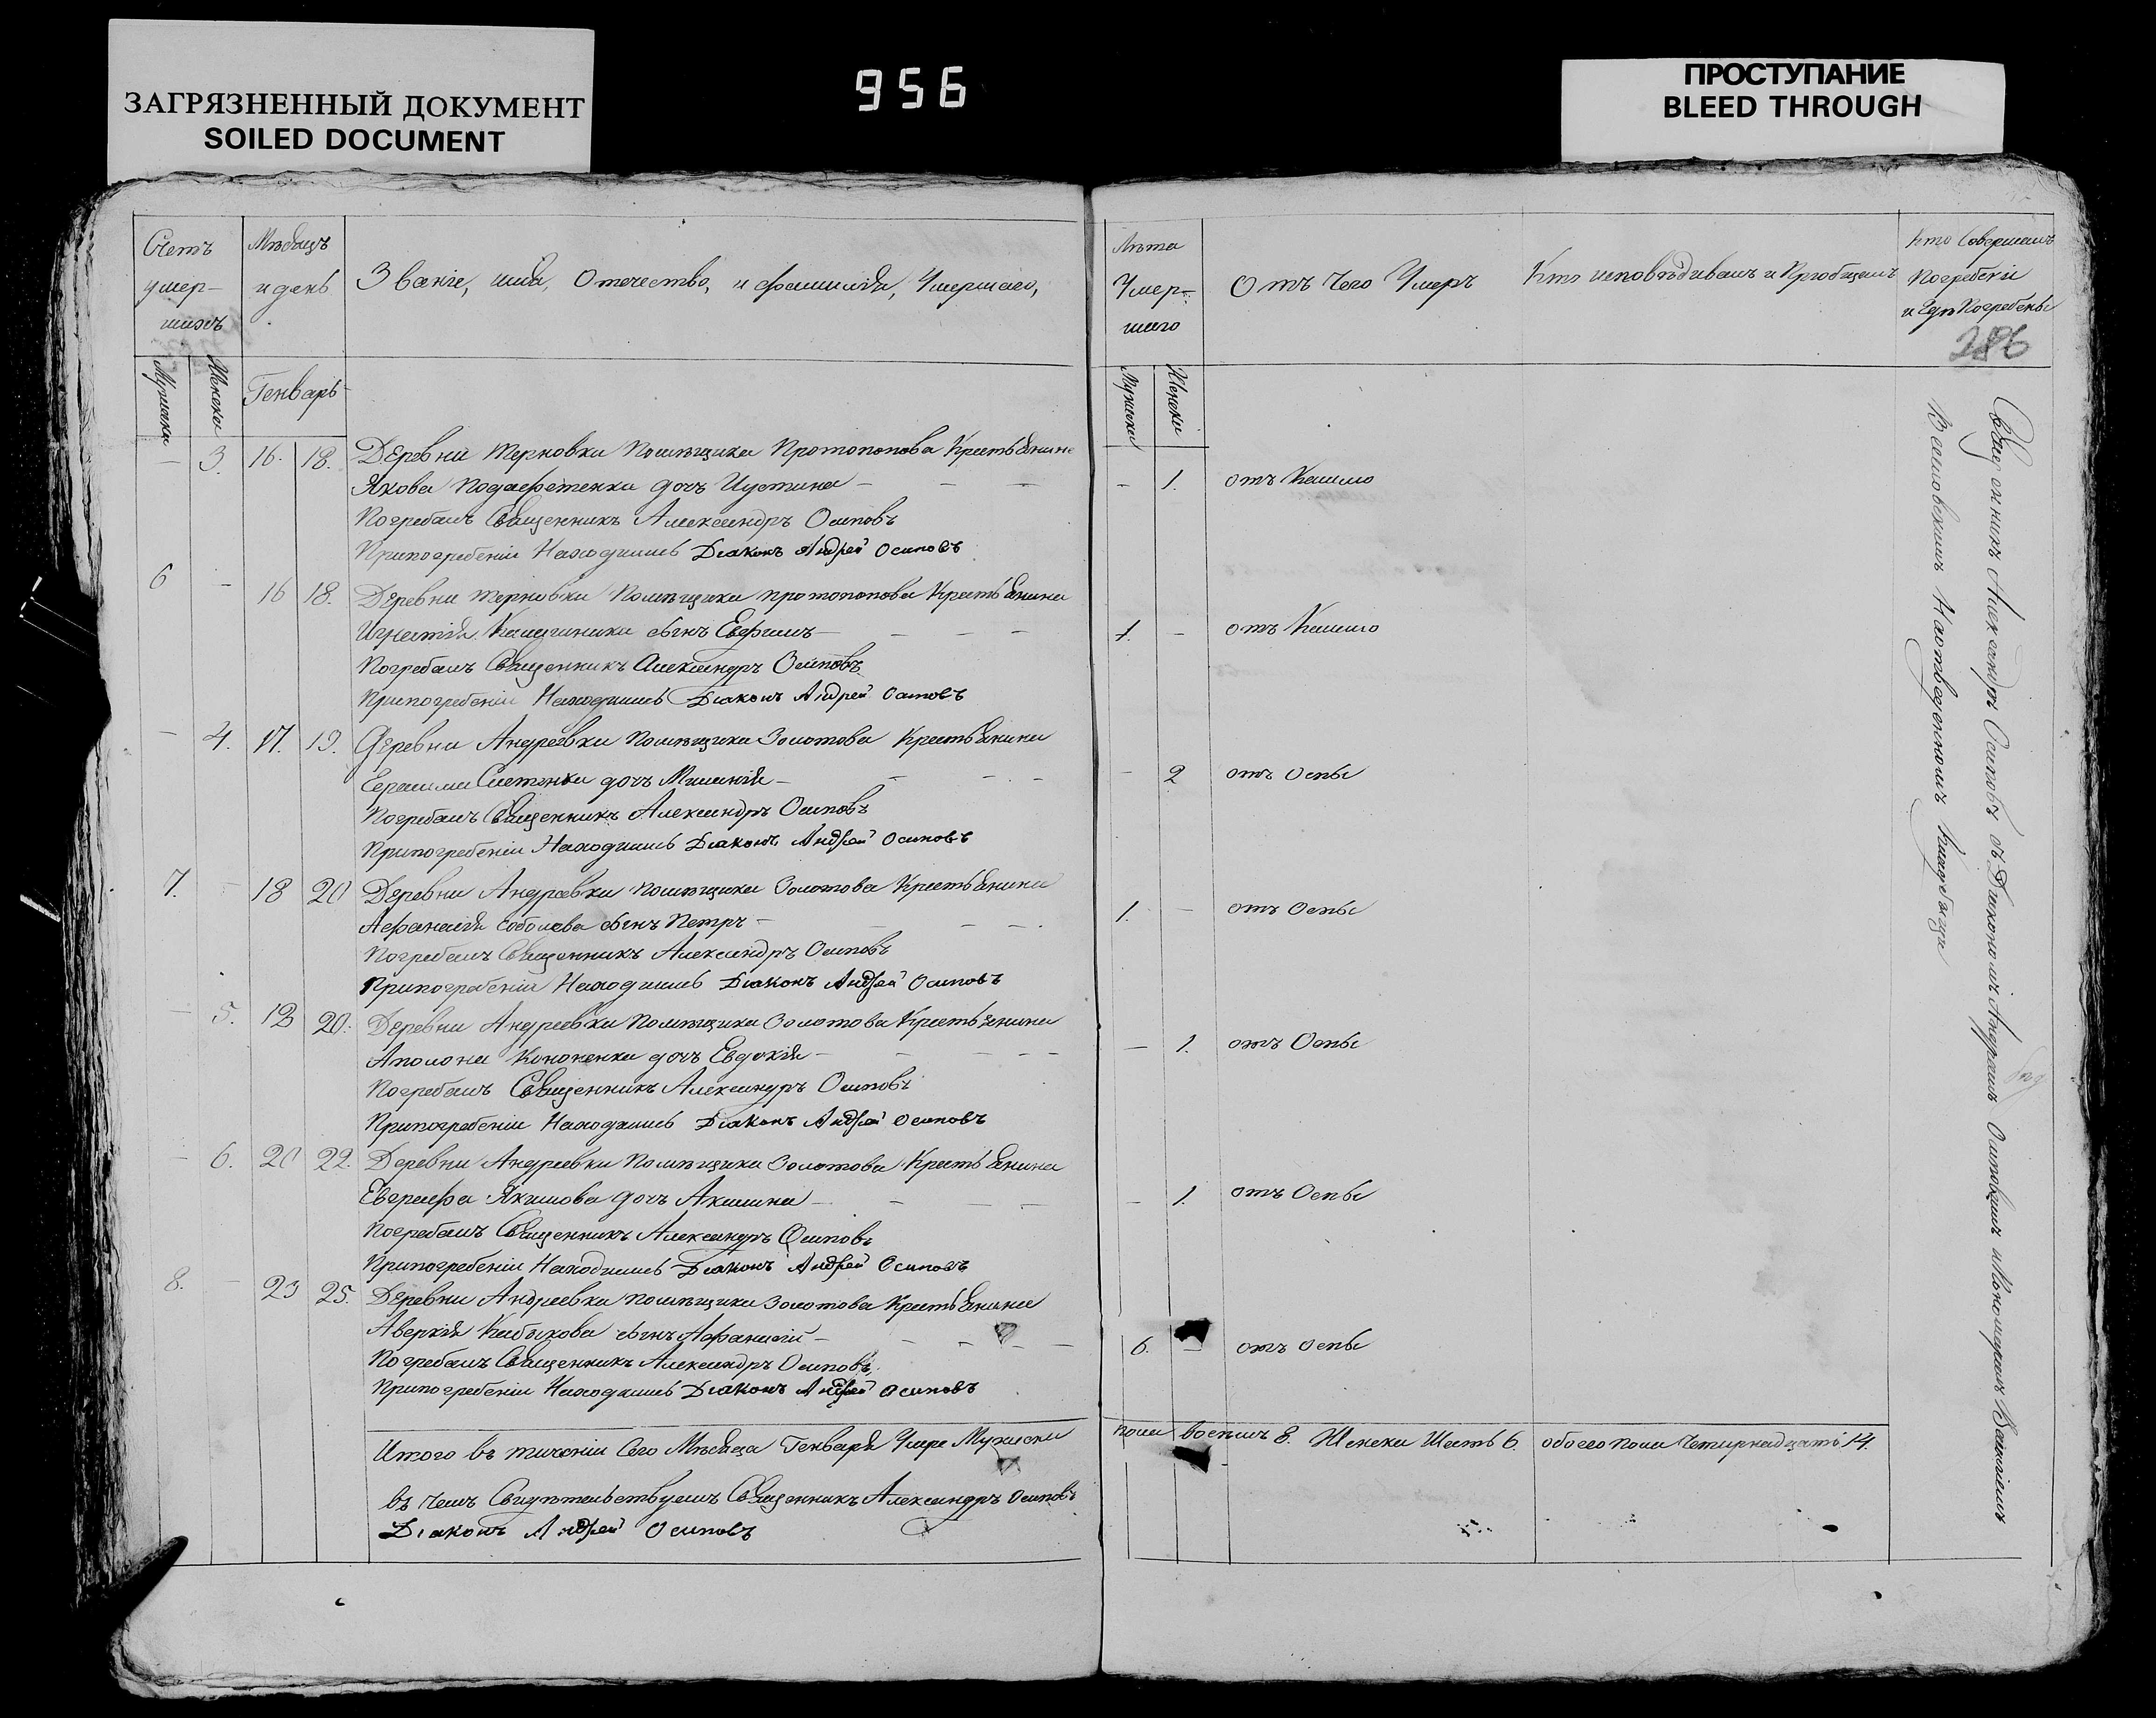 ЗАГРЯЗНЕННЫЙ ДОКУМЕНТ
SOILED DOCUMENT
956
ПРОСТУПАНИЕ
BLEED THROUGH
Счетъ умер-шихъ
Мѣсяцъ и день
Званіе, имя, Отечество, и фамилія, Умершаго,
Мужеска
Женска
Генварь
- 3. 16. 18. Деревни Терновки Помѣщика Протопопова Крестьянина
Якова дочъ Иустина
Погребалъ Священникъ Александръ Осиповъ
Припогребеніи Находились Діаконъ Андрей Осиповъ
6 - 16 18. Деревни терновки Помѣщика протопопова Крестьянина
Игнатія сынъ Евфимъ
Погребалъ Священникъ Александръ Осиповъ
Припогребеніи Находились Діаконъ Андрей Осиповъ
- 4. 17. 19. Деревни Андреевки Помѣщика Золотова Крестьянина
Герасима дочъ Маланія
Погребалъ Священникъ Александръ Осиповъ
Припогребеніи Находились Діаконъ Андрей Осиповъ
7. - 18 20 Деревни Андреевки помѣщика Золотова Крестьянина
Афанасія Соболева сынъ Петръ
Погребалъ Священникъ Александръ Осиповъ
Припогребеніи Находились Діаконъ Андрей Осиповъ
- 5. 18 20. Деревни Андреевки Помѣщика Золотова Крестьянина
Аполона Кононенка дочъ Евдокія
Погребалъ Священникъ Александръ Осиповъ
Припогребеніи Находились Діаконъ Андрей Осиповъ
- 6. 20 22. Деревни Андреевки Помѣщика Золотова Крестьянина
Евграфа Якимова дочъ Акилина
Погребалъ Священникъ Александръ Осиповъ
Припогребеніи Находились Діаконъ Андрей Осиповъ
8. - 23 25. Деревни Андреевки помѣщика Золотова Крестьянина
Аверкія сынъ Афанасій
Погребалъ Священникъ Александръ Осиповъ
Припогребеніи Находились Діаконъ Андрей Осиповъ
Итого въ тиченіи Сего Мѣсяца Генваря Умре Мужеска
въ чемъ Свидѣтельствуемъ Священникъ Александръ Осиповъ
Діаконъ Андрей Осиповъ
Лѣта Умер-шаго
Отъ Чего Умеръ
Кто исповѣдывалъ и Пріобщалъ
Кто Совершалъ Погребеніе и Гдѣ Погребены
286
Мужеска
Женска
- 1. отъ Кашлю
1. - отъ Кашлю
- 2 отъ Оспы
1. - отъ Оспы
- 1. отъ Оспы
- 1. отъ Оспы
6. - отъ Оспы
пола восемъ 8. Женска Шесть 6. обоего пола Четырнадцать 14.
Священникъ Александръ Осиповъ съ Діакономъ Андреемъ Осиповымъ
Наотведенномъ Кладбищи